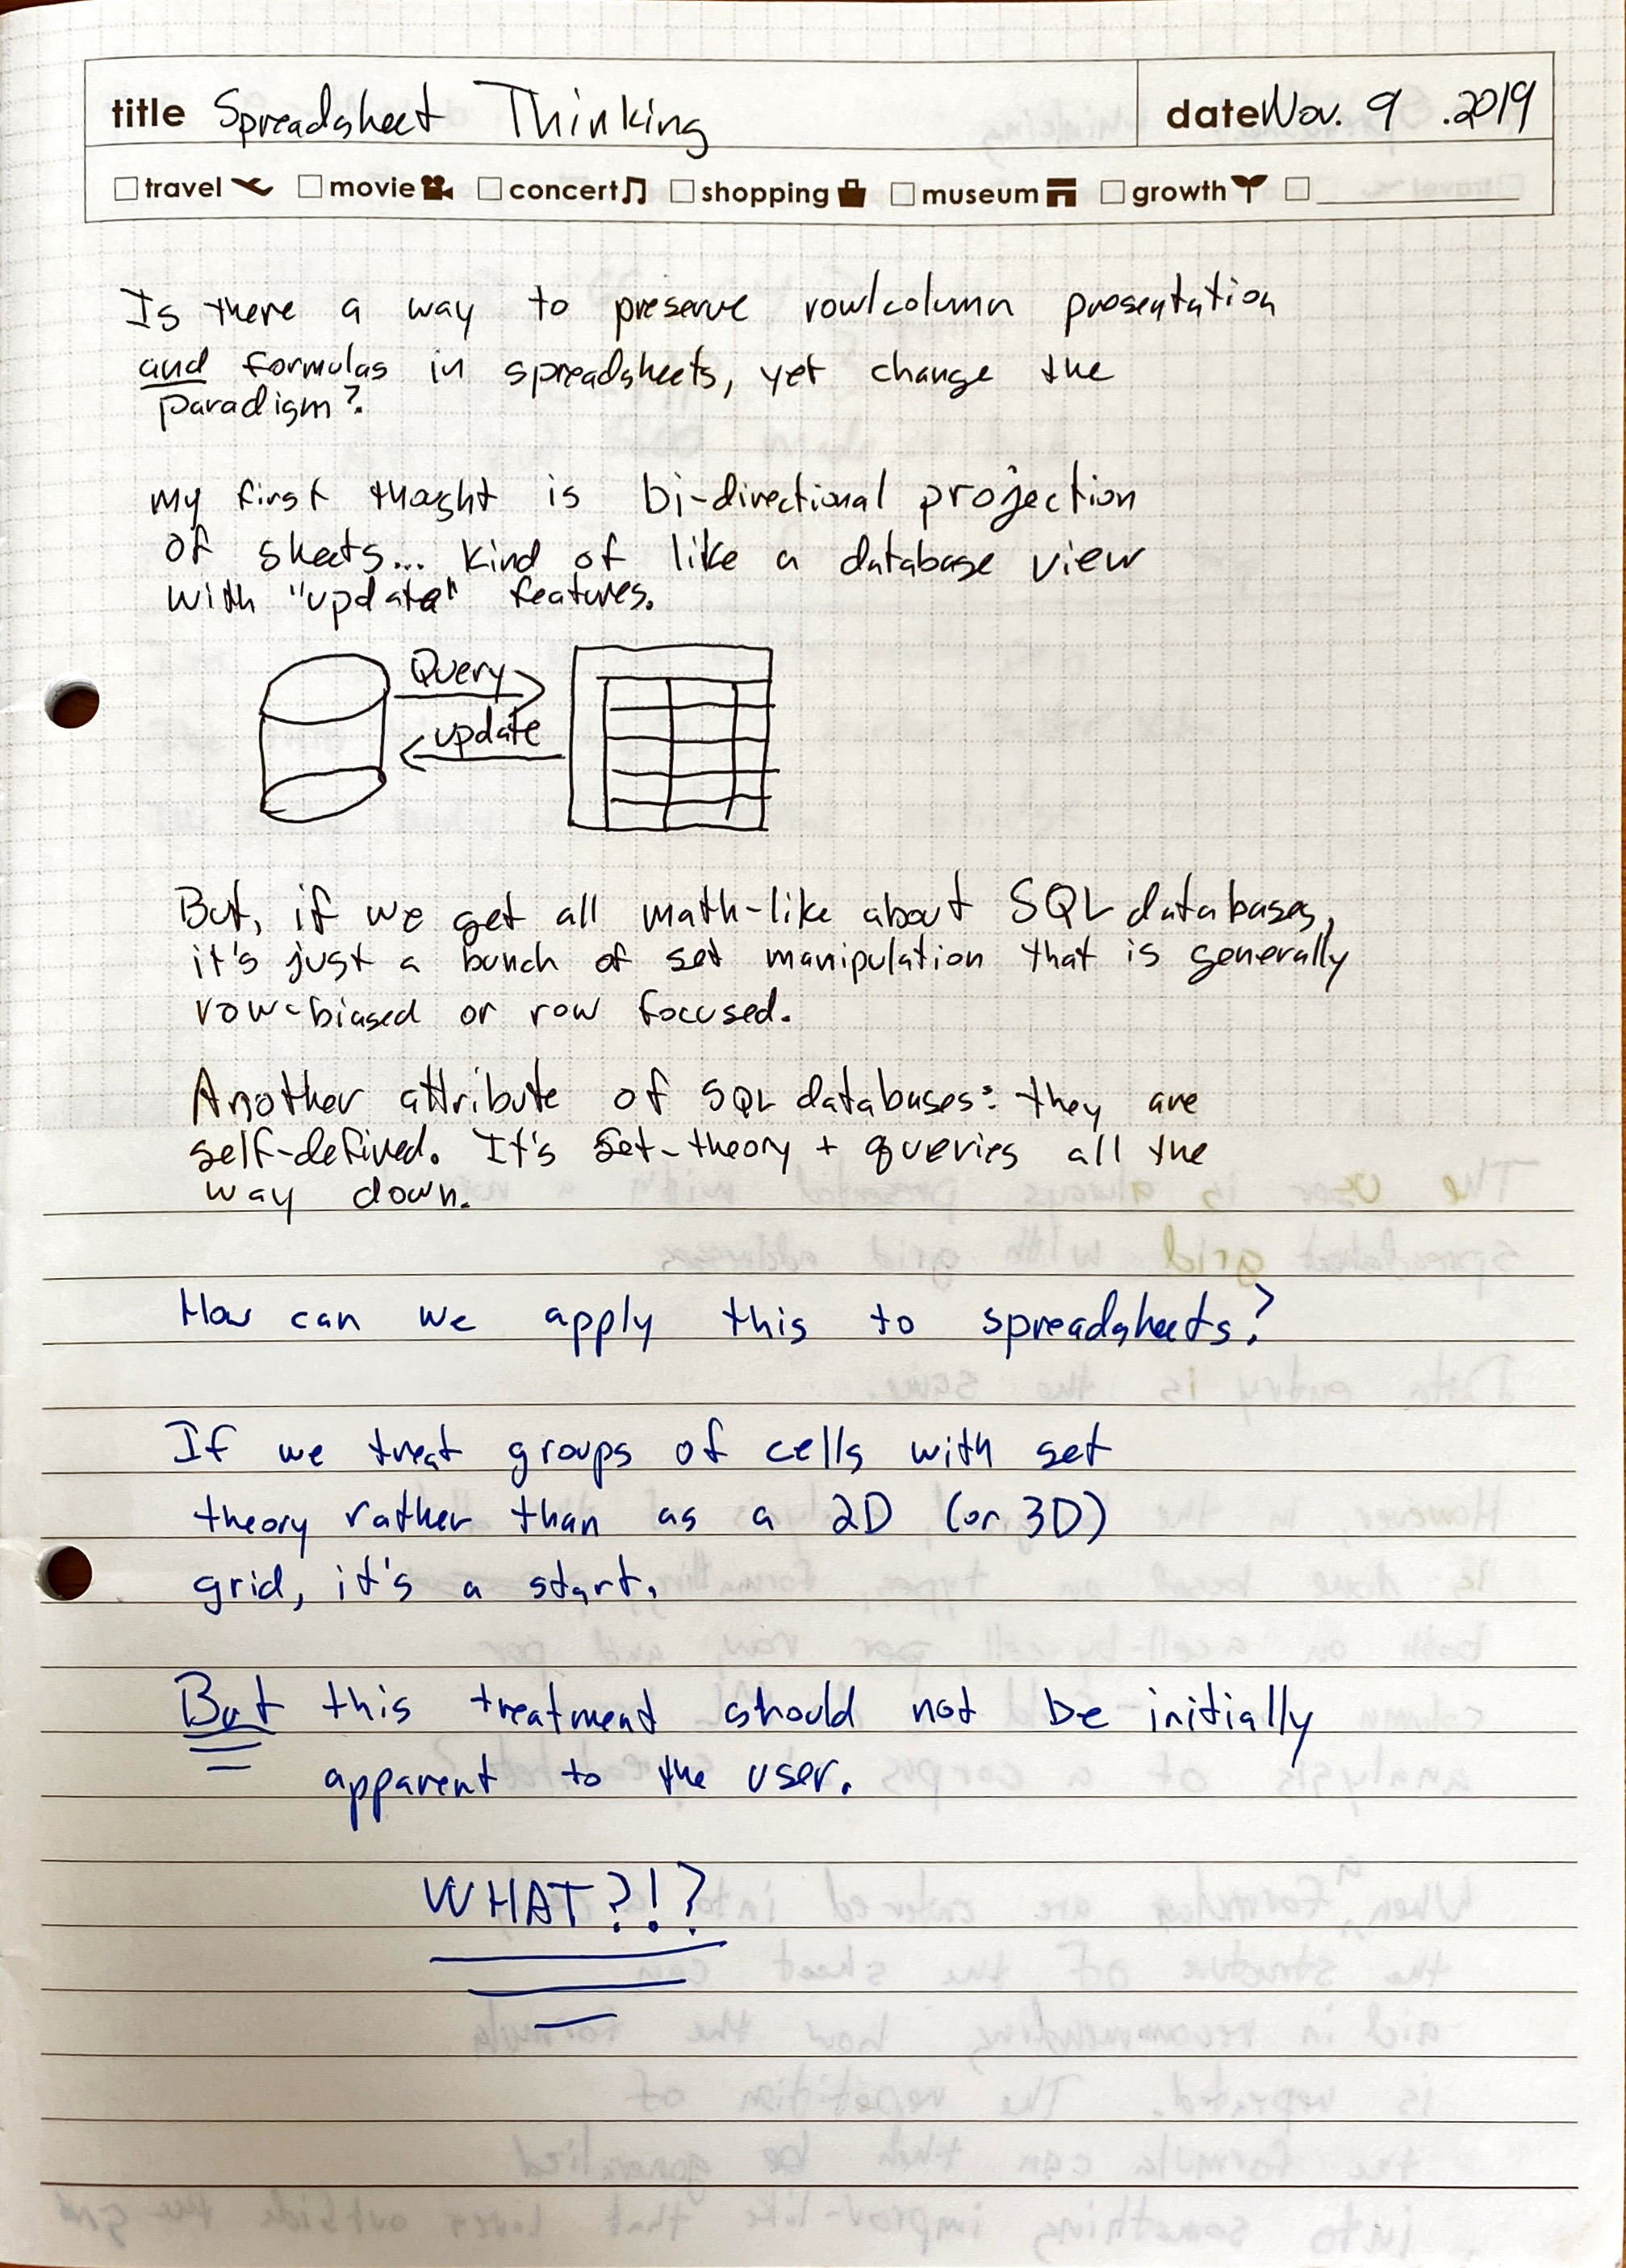 title Spreadsheet Thinking
date Nov. 9 .2019
travel movie concert shopping museum growth
Is there a way to preserve row/column presentation
and formulas in spreadsheets, yet change the
paradigm?
my first thought is bi-directional projection
of sheets... kind of like a database view
with "update" features.
Query
update
But, if we get all math-like about SQL databases,
it's just a bunch of set manipulation that is generally
row-biased or row focused.
Another attribute of SQL databases: they are
self-defined. It's set-theory + queries all the
way down.
How can we apply this to spreadsheets?
If we treat groups of cells with set
theory rather than as a 2D (or 3D)
grid, it's a start.
But this treatment should not be initially
apparent to the user.
WHAT?!?